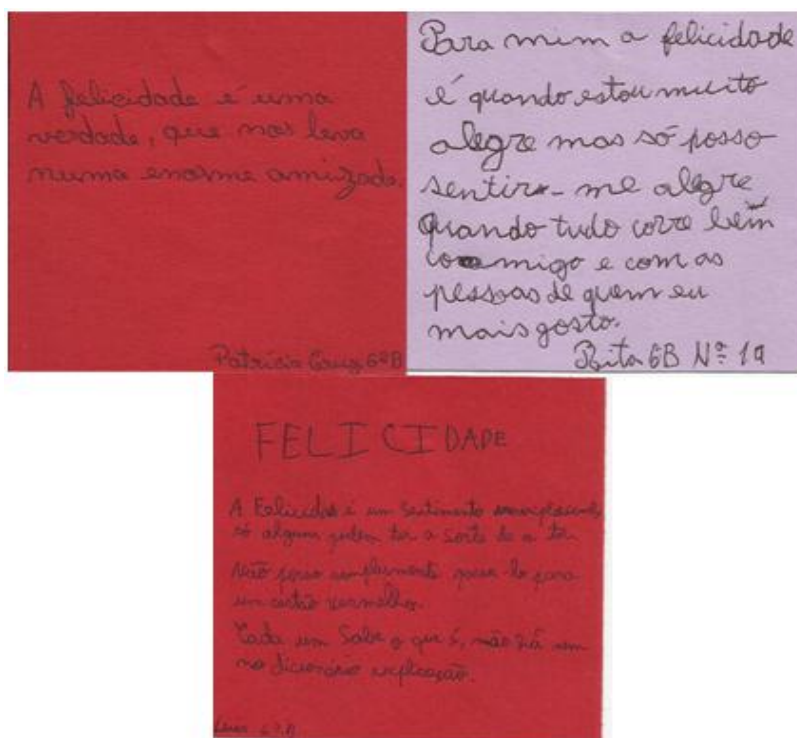 A felicidade é uma
verdade, que nos leva
numa enorme amizade.
Patrícia Cruz 6ºB
Para mim a felicidade
é quando estou muito
alegre mas só posso
sentir-me alegre
quando tudo corre bem
comigo e com as
pessoas de quem eu
mais gosto.
Rita 6B Nº 19
FELICIDADE
A Felicidade é um Sentimento
só alguns podem ter a sorte de a ter.
Não posso simplesmente passa-lo para
um cartão vermelho.
Cada um Sabe o que é, não há nem
no dicionário explicação.